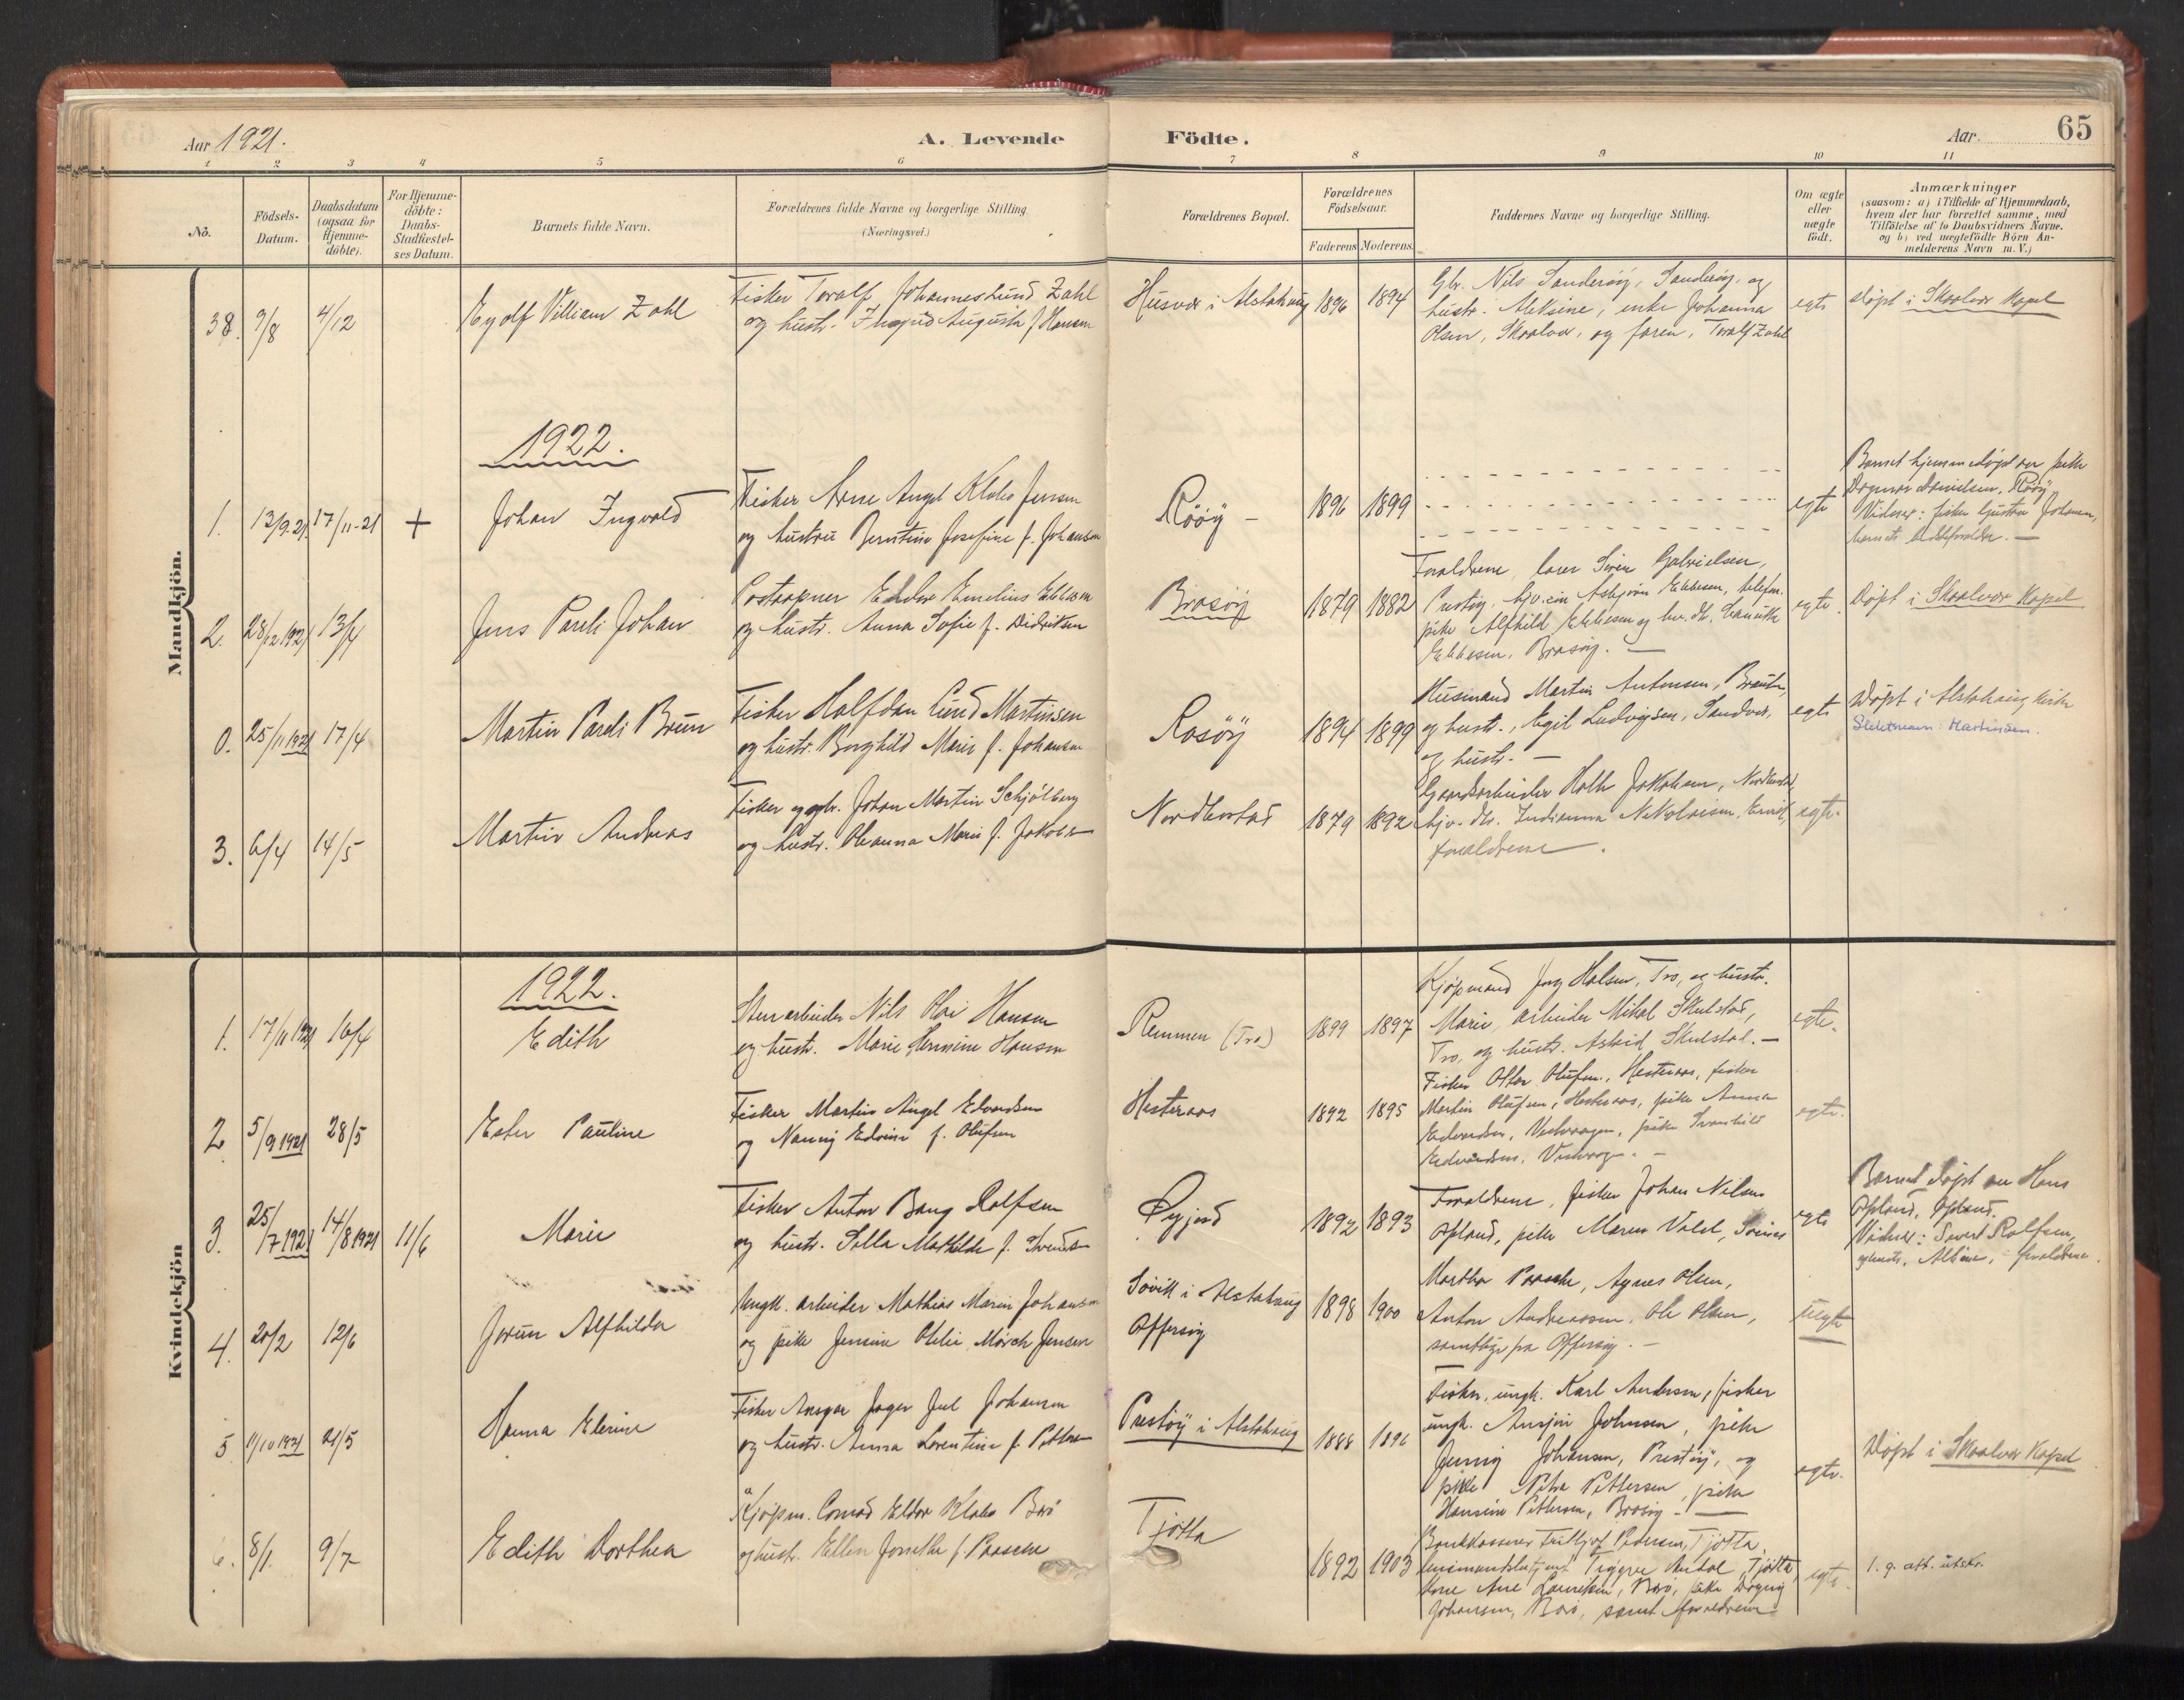 Aar 1921.
A. Levende Födte.
Aar.
65
1 2 3 4 5 6 7 8 9 10 11
No.
Födsels-
Datum.
Daabsdatum
(ogsaa for
Hjemme-
döbte).
For Hjemme-
döbte:
Daabs-
Stadfæstel-
ses Datum.
Barnets fulde Navn.
Forældrenes fulde Navne og borgerlige Stilling
(Næringsvei.)
Forældrenes Bopæl.
Forældrenes
Födselsaar.
Faderens Moderens
Faddernes Navne og borgerlige Stilling.
Om ægte
eller
uægte
födt.
Anmærkninger
(saasom: a) i Tilfælde af Hjemmedaab,
hvem der har forrettet samme, med
Tilföielse af to Daabsvidners Navne.
og b) ved uægtefödte Börn An-
melderens Navn m. V.)
Mandkjön.
38. 9/8 4/12
Eyolf Villiam Zahl
Fisker Toralf Johannes Lund Zahl
og hustr. Augusta f. Hansen
Husvær i Alstahaug 1896 1894
Gbr. Nils Sanderøy, Sanderøy, og
hustr. Aleksine, enke Johanna
Olsen, Skaalvær, og faren, Toralf Zahl
egte
døpt i Skaalvær Kapel
1922.
1. 13/9.21. 17/11-21 +
Johan Ingvald
Fisker Arne Angel Klæbo Jensen
og hustru Berntine Josefine f. Johansen
Røøy - 1896 1899
egte
Barnet hjemmedøpt av pike
Dagmar Danielsen, Røøy
Vidner: fisker Gustav Johansen,
barnets
2. 28/12 1921 13/4
Jens Pareli Johan
Postaapner Edvin Emelius Ebbesen
og hustr. Anna Sofie f. Didriksen
Brasøy 1879 1882
Forældrene, lærer Søren Gabrielsen,
Prestøy, Asbjørn Ebbesen, telefon.
pike Alfhild Ebbesen og
Ebbesen, Brasøy. -
egte.
Døpt i Skaalvær Kapel
0. 25/11 1921 17/4
Martin Pareli Bruun
Fisker Halfdan Lund Martinsen
og hustr. Borghild Marie f. Johansen
Rosøy 1894 1899
Husmand Martin Antonsen,
og hustr., Egil Ludvigsen, Sandvær,
og hustr. -
egte
Døpt i Alstahaug kirke
Slektsnavn: Martinsen.
3. 6/4 14/5
Martin Andreas
Fisker og gbr. Johan Martin Schjølberg
og hustr. Oleanna Marie f. Jakobsen
Nordherstad 1879 1892
Gaardsarbeider Jakobsen, Nordherstad,
Nikolaisen,
forældrene.
egte.
Kvindekjön
1922.
1. 17/11 1921 16/4
Edith
Stenarbeider Nils Olai Hansen
og hustr. Marie Hermine Hansen
Remmen (Tro) 1899 1897
Kjøpmand Halsen, Tro, og hustr.
Marie, arbeider Mikal Skulstad,
Tro, og hustr. Astrid Skulstad. -
egte.
2. 5/9 1921 28/5
Ester Pauline
Fisker Martin Angel Edvardsen
og Nanny Edvine f. Olufsen
Hesteraas 1892 1895
Fisker Olufsen, Hesteraas, fisker
Martin Olufsen, Hesteraas, pike Anna
Edvardsen, pike Svanhild
Edvardsen, -
egte.
3. 25/7 1921 14/8 1921 11/6
Marie
Fisker Anton Bang Rolfsen
og hustr. Salla Mathilde f. Svendsen
Øyjord 1892 1893
Forældrene, fisker Johan Nilsen
Opland, pike Maren
egte
Barnet døpt av Hans
Opland, Opland.
Vidner: Sivert Rolfsen,
og hustr. Albine, - forældrene.
4. 20/2 12/6
Jorun Alfhilda
Ungk. arbeider Mathias Marin Johansen
og pike Jensine Otilie Mörch Jensen
Søvik i Alstahaug
Offersøy
1898 1900
Martha Paasche, Agnes Olsen,
Anton Andreassen, Ole Olsen,
samtlige fra Offersøy. -
uegte
5. 11/10 1921 21/5
Hanna Elerine
Fisker Ansgar Jager Juel Johansen
og hustr. Anna Lorentine f. Pettersen
Prestøy i Alstahaug 1888 1896
Fisker, ungk. Karl Andersen, fisker
ungk. Johnsen, pike
Jenny Johansen, Prestøy, og
pike Petra Pettersen, pike
Hansine Pettersen, Brasøy - -
egte.
Døpt i Skaalvær Kapel
6. 8/1. 9/7
Edith Dorthea
Kjøpm. Conrad Eldor Klæbo Barø
og hustr. Ellen Jonette f. Paasche
Tjøtta 1892 1903
Bankkasserer Fritjof Pedersen, Tjøtta,
Trygve Antal, Tjøtta,
Ane Lauritsen, Barø, pike Dagny
Johansen, Barø, samt forældrene
egte.
1. g. att. utskr.